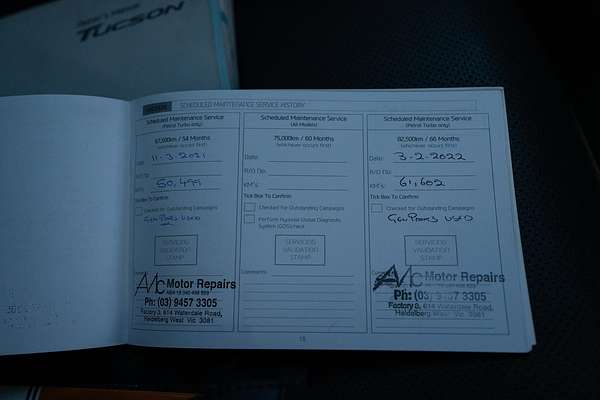 Owner's Manual
TUCSON
SCHEDULED MAINTENANCE SERVICE HISTORY
Scheduled Maintenance Service
(Petrol Turbo only)
67,500km / 54 Months
(whichever occurs first)
Date: 11-3-2021
R/O No:
KM's: 50,499
Tick Box To Confirm
Checked for Outstanding Campaigns
Gen Parts Used
SERVICING
VALIDATION
STAMP
Motor Repairs
Ph: (03) 9457 3305
Factory 3, 614 Waterdale Road,
Heidelberg West Vic 3081
Scheduled Maintenance Service
(All Models)
75,000km / 60 Months
(whichever occurs first)
Date:
R/O No:
KM's:
Tick Box To Confirm
Checked for Outstanding Campaigns
Perform Hyundai Global Diagnostic
System (GDS) check
SERVICING
VALIDATION
STAMP
Comments:
Scheduled Maintenance Service
(Petrol Turbo only)
82,500km / 66 Months
(whichever occurs first)
Date: 3-2-2022
R/O No:
KM's: 61,602
Tick Box To Confirm
Checked for Outstanding Campaigns
Gen Parts Used
SERVICING
VALIDATION
STAMP
Motor Repairs
Ph: (03) 9457 3305
Factory 3, 614 Waterdale Road,
Heidelberg West Vic 3081